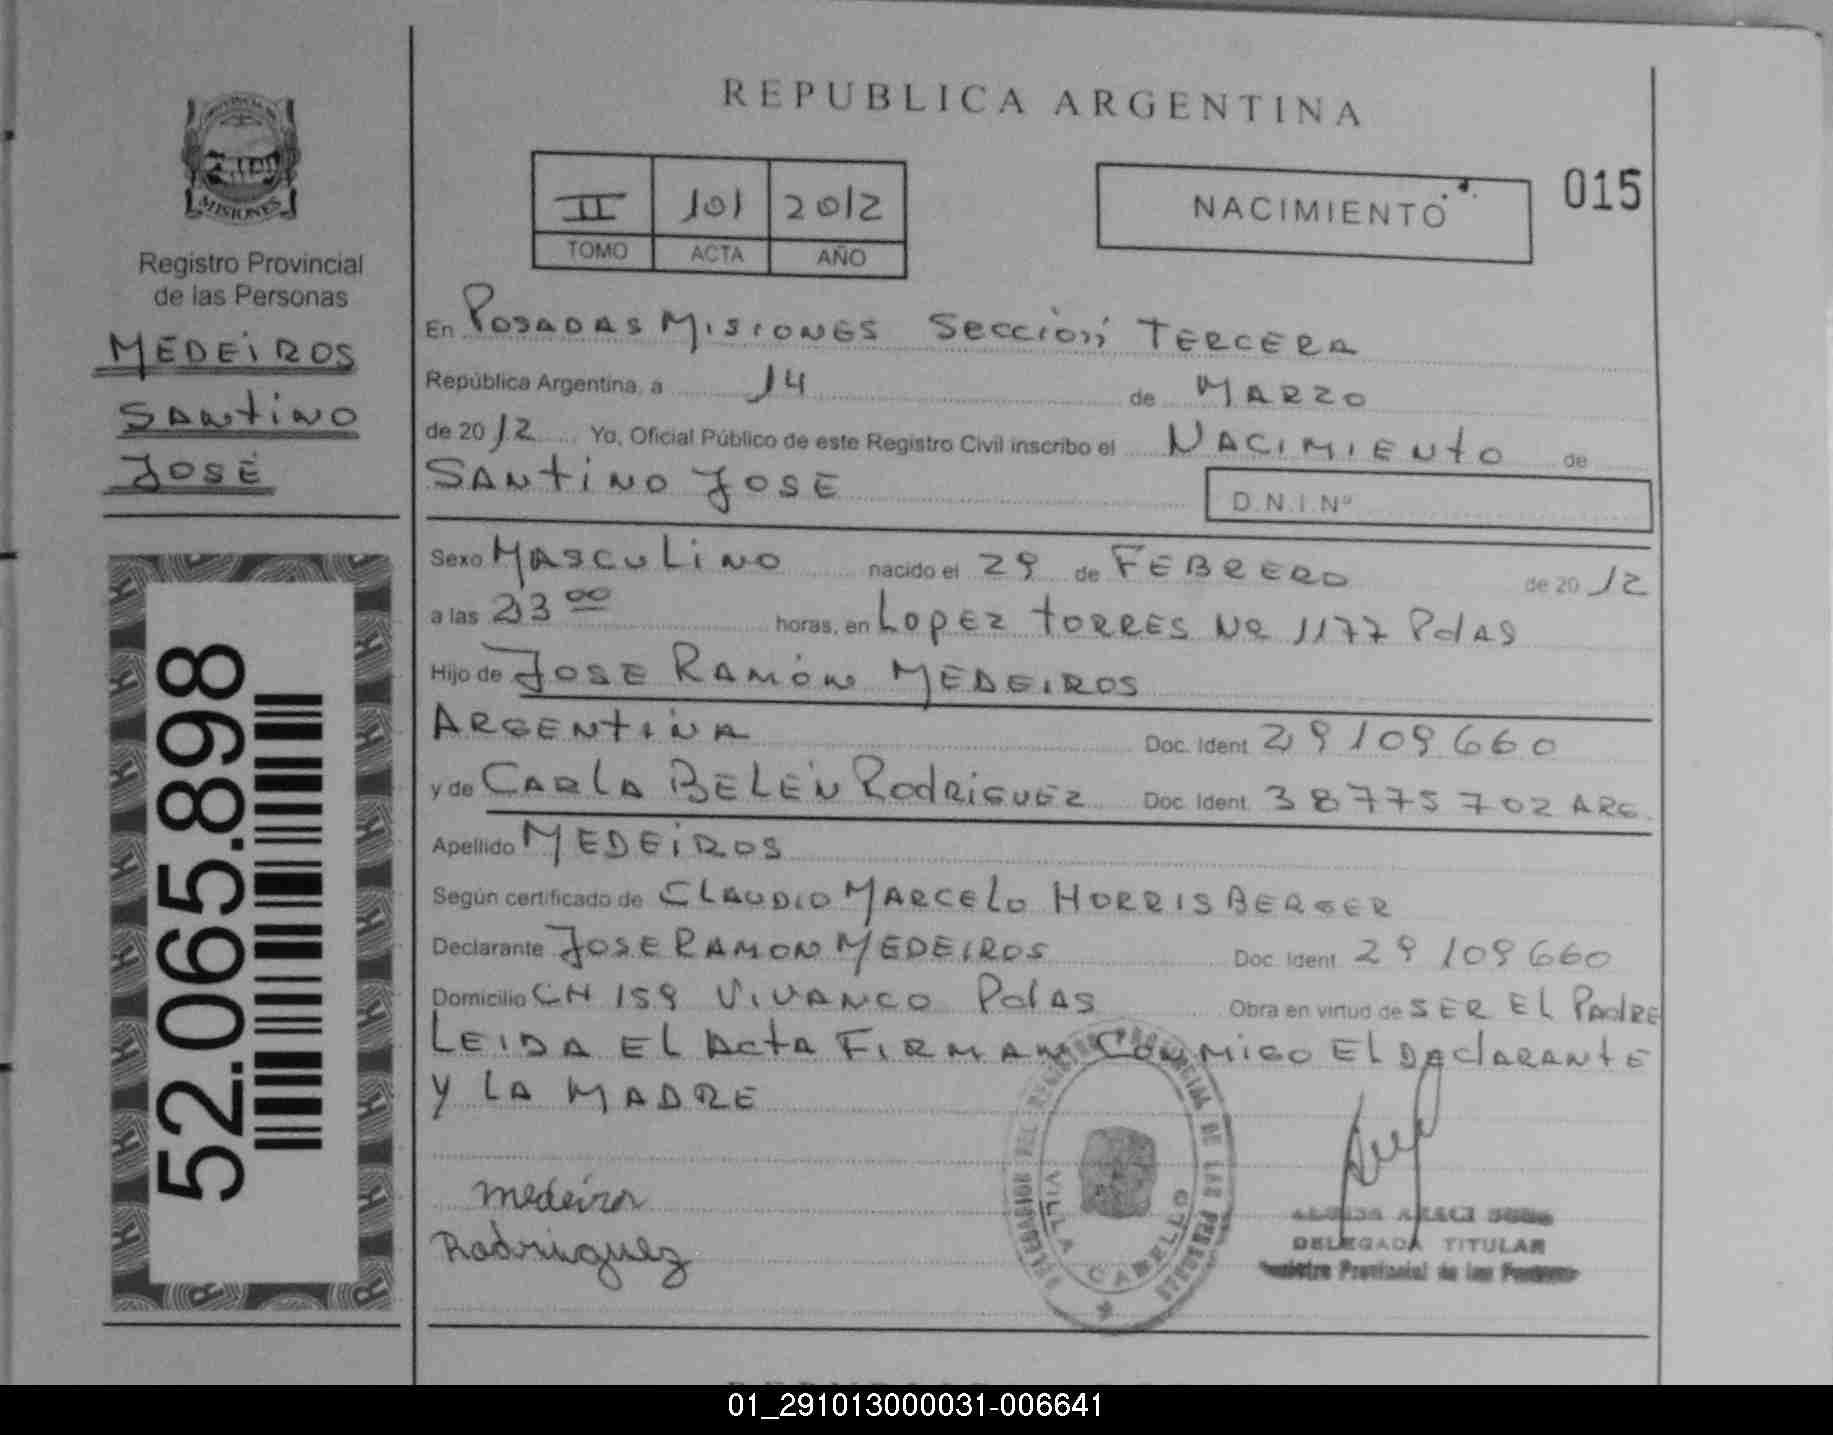 REPUBLICA ARGENTINA
MISIONES
Registro Provincial
de las Personas
MEDEIROS
SANTINO
JOSÉ
52.065.898
II 101 2012
TOMO ACTA AÑO
NACIMIENTO
015
En POSADAS MISIONES SECCIÓN TERCERA
República Argentina, a 14 de MARZO
de 2012 Yo, Oficial Público de este Registro Civil inscribo el NACIMIENTO de
SANTINO JOSE D.N.I.Nº
Sexo MASCULINO nacido el 29 de FEBRERO de 2012
a las 23 00 horas, en LOPEZ TORRES Nº 1177 PdAS
Hijo de JOSE RAMÓN MEDEIROS
ARGENTINA Doc. Ident. 29109660
y de CARLA BELÉN RODRIGUEZ Doc. Ident. 38775702 ARG.
Apellido MEDEIROS
Según certificado de CLAUDIO MARCELO HORRISBERGER
Declarante JOSE RAMON MEDEIROS Doc. Ident. 29109660
Domicilio CH 159 VIVANCO PdAS Obra en virtud de SER EL PADRE
LEIDA EL ACTA FIRMAN CONMIGO EL DECLARANTE
Y LA MADRE
medeiros
Rodriguez
DELEGACION DEL REGISTRO PROVINCIAL DE LAS PERSONAS
VILLA CABELLO
DELEGADA TITULAR
Registro Provincial de las Personas
01_291013000031-006641